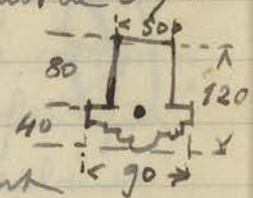 50
80
120
40
90